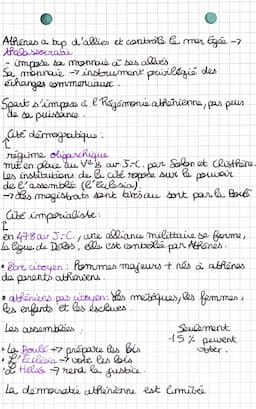 Athènes a trop d'alliés et contrôle la mer Egée →
thalassocratie
- impose sa monnaie à ses alliés
Sa monnaie → instrument privilégié des
échanges commerciaux.
Spart s'impose à l'hégémonie athénienne, pas peur
de sa puissance.
Cité démocratique :
régime oligarchique
mis en place au Ve s av J-C. par Solon et Clisthène.
Les institutions de la cité repose sur le pouvoir
de l'assemblée (l'Eclésia).
→ les magistrats sont tirés au sort par la Boulê
Cité impérialiste :
en 478 av J-C., une alliance militaire se forme,
la ligue de Délos, elle est contrôlée par Athènes.
• être citoyen : hommes majeurs + nés à athènes
de parents athéniens.
• athéniens pas citoyen : les métèques, les femmes,
les enfants et les esclaves.
Les assemblées :
Seulement
15 % peuvent
voter.
• La Boulê → prépare les lois
• L'Eclésia → vote les lois
• l'Héliée → rend la justice.
La démocratie athénienne est limitée